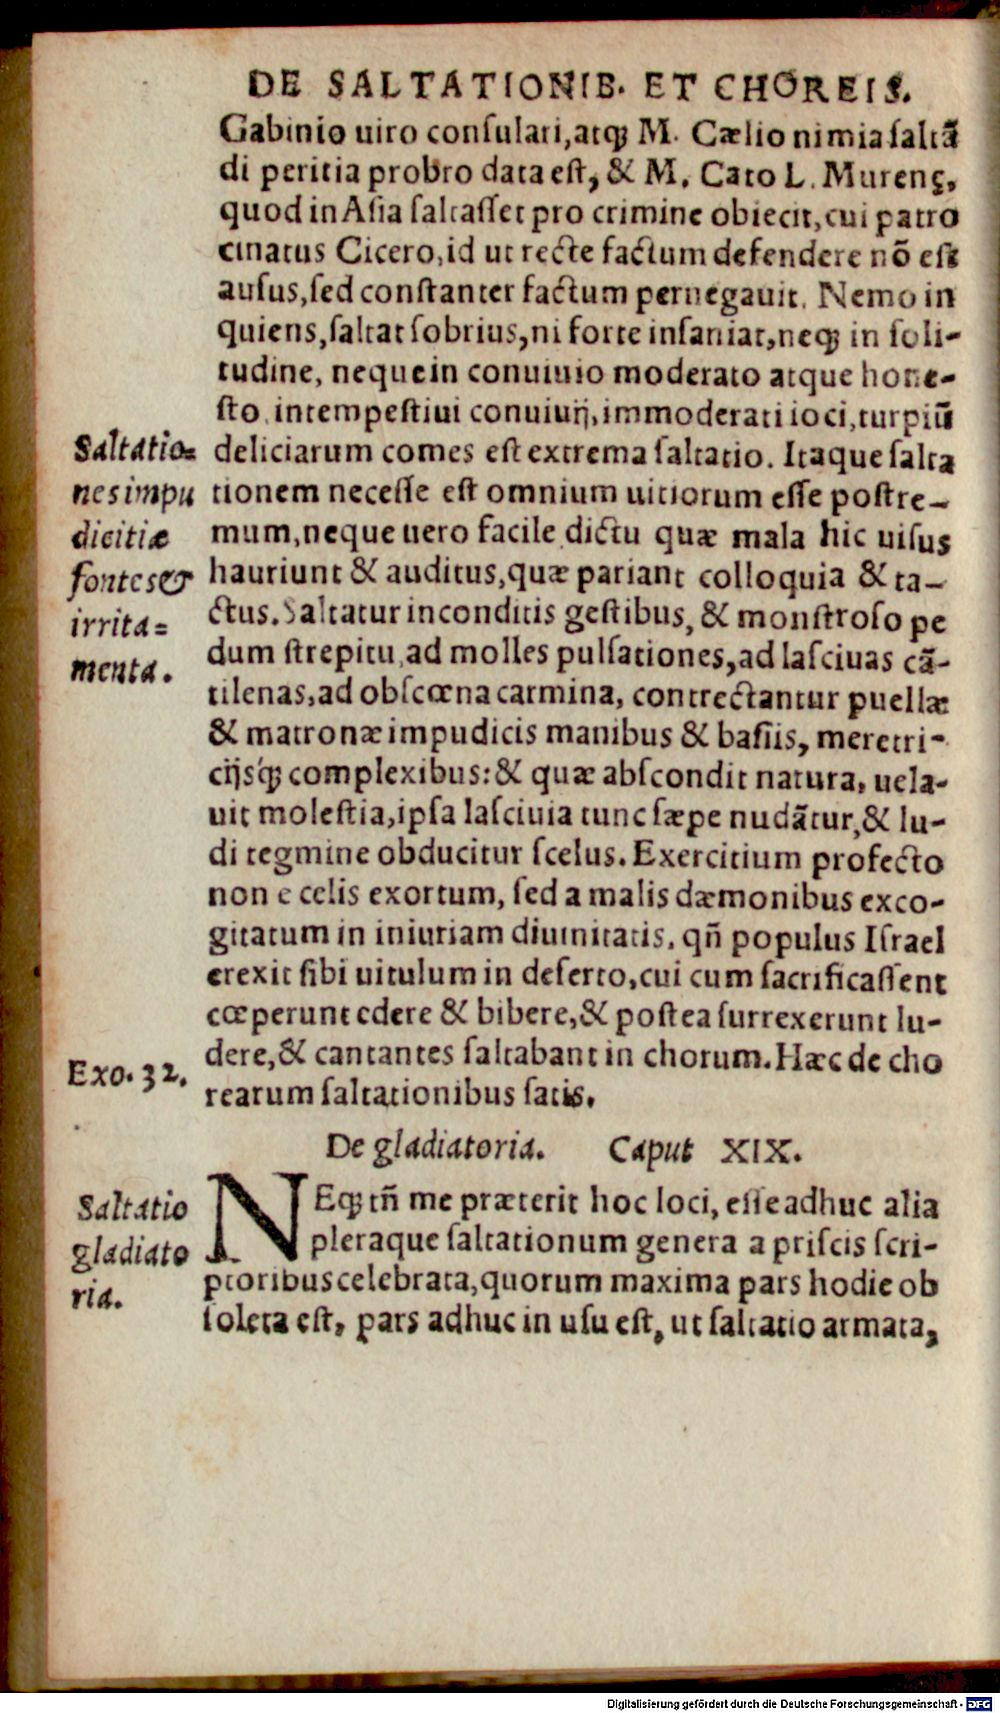 DE SALTATIONIB. ET CHOREIS.
Gabinio uiro conſulari, atq; M. Cælio nimia ſaltã
di peritia probro data eſt, & M. Cato L. Murenę,
quod in Aſia ſaltaſſet pro crimine obiecit, cui patro
cinatus Cicero, id ut recte factum defendere nõ eſt
auſus, ſed conſtanter factum pernegauit. Nemo in
quiens, ſaltat ſobrius, ni forte inſaniat, neq; in ſoli-
tudine, neque in conuiuio moderato atque hone-
ſto. intempeſtiui conuiuij, immoderati ioci, turpiũ
deliciarum comes eſt extrema ſaltatio. Itaque ſalta
tionem neceſſe eſt omnium uitiorum eſſe poſtre-
mum, neque uero facile dictu quæ mala hic uiſus
hauriunt & auditus, quæ pariant colloquia & ta-
ctus. Saltatur inconditis geſtibus, & monſtroſo pe
dum ſtrepitu, ad molles pulſationes, ad laſciuas cã-
tilenas, ad obſcœna carmina, contrectantur puellæ
& matronæ impudicis manibus & baſiis, meretri-
cijsq́; complexibus: & quæ abſcondit natura, uela-
uit moleſtia, ipſa laſciuia tunc ſæpe nudãtur, & lu-
di tegmine obducitur ſcelus. Exercitium profecto
non e celis exortum, ſed a malis dæmonibus exco-
gitatum in iniuriam diuinitatis, qñ populus Iſrael
erexit ſibi uitulum in deſerto, cui cum ſacrificaſſent
cœperunt edere & bibere, & poſtea ſurrexerunt lu-
dere, & cantantes ſaltabant in chorum. Hæc de cho
rearum ſaltationibus ſatis.
Saltatio=
nes impu
dicitiæ
fontes &
irrita=
menta.
Exo. 32.
De gladiatoria. Caput XIX.
NEq; tñ me præterit hoc loci, eſſe adhuc alia
pleraque ſaltationum genera a priſcis ſcri-
ptoribus celebrata, quorum maxima pars hodie ob
ſoleta eſt, pars adhuc in uſu eſt, ut ſaltatio armata,
Saltatio
gladiato
ria.
Digitalisierung gefördert durch die Deutsche Forschungsgemeinschaft - DFG